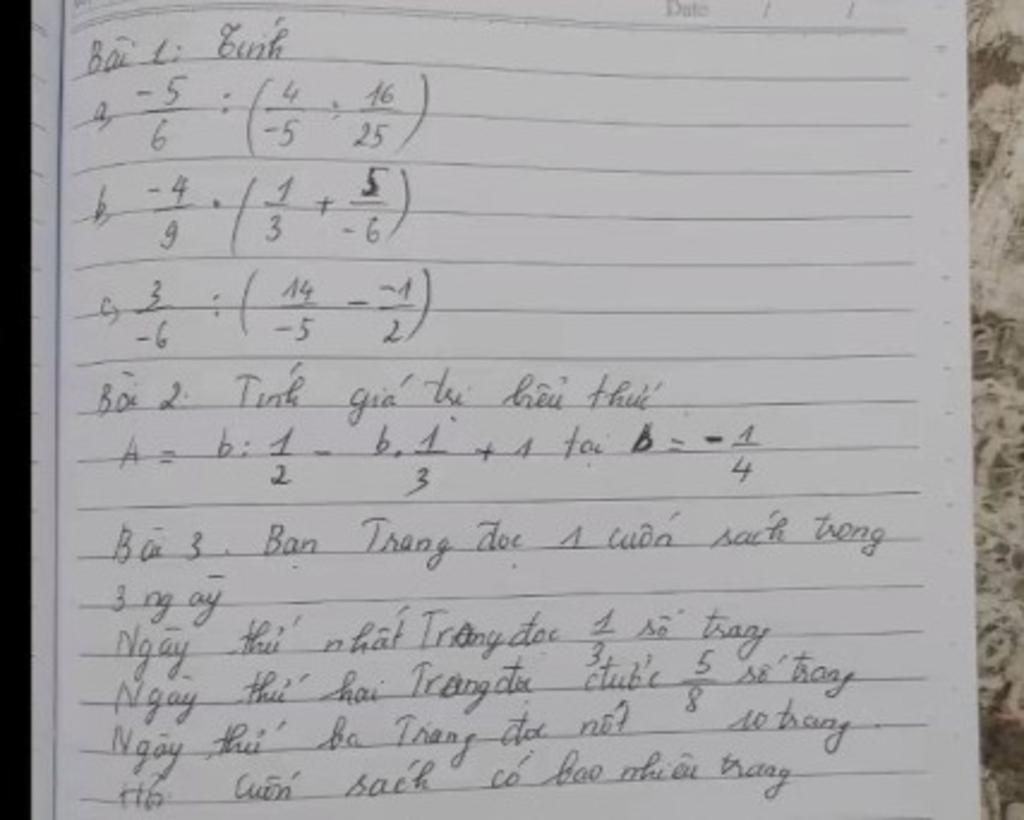 Date / /
Bài 1: Tính
a, -5/6 : (4/-5 : 16/25)
b, -4/9 . (1/3 + 5/-6)
c, 3/-6 : (14/-5 - -1/2)
Bài 2. Tính giá trị biểu thức
A = b : 1/2 - b . 1/3 + 1 tại b = -1/4
Bài 3. Bạn Trang đọc 1 cuốn sách trong
3 ngày
Ngày thứ nhất Trang đọc 1/3 số trang
Ngày thứ hai Trang đọc được 5/8 số trang
Ngày thứ ba Trang đọc nốt 10 trang.
Hỏi cuốn sách có bao nhiêu trang